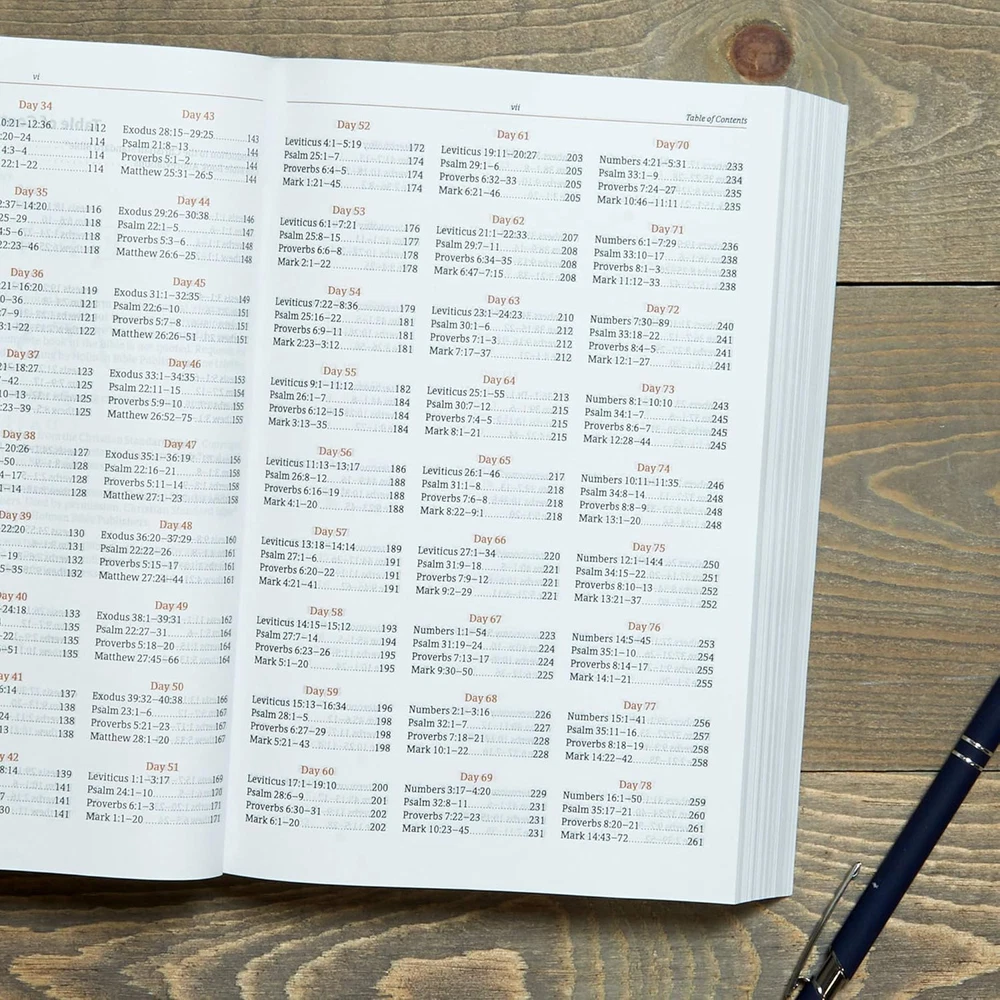 vi
Day 34
0:21–12:36 112
:20–24 114
4:3–4 114
22:1–22 114
Day 35
2:37–14:20 116
25–29 118
4:5–6 118
22:23–46 118
Day 36
:21–16:20 119
0–36 121
27–9 121
3:1–22 122
Day 37
1–18:27 123
–42 125
10–13 125
:23–39 125
Day 38
–20:26 127
–50 128
4–17 128
1–14 128
Day 39
22:20 130
131
–19 132
5–35 132
Day 40
–24:18 133
135
–22 135
–51 135
Day 41
6:14 137
138
24 138
13 138
Day 42
8:14 139
141
7 141
30 141
Day 43
Exodus 28:15–29:25 143
Psalm 21:8–13 144
Proverbs 5:1–2 144
Matthew 25:31–26:5 144
Day 44
Exodus 29:26–30:38 146
Psalm 22:1–5 147
Proverbs 5:3–6 148
Matthew 26:6–25 148
Day 45
Exodus 31:1–32:35 149
Psalm 22:6–10 151
Proverbs 5:7–8 151
Matthew 26:26–51 151
Day 46
Exodus 33:1–34:35 153
Psalm 22:11–15 154
Proverbs 5:9–10 155
Matthew 26:52–75 155
Day 47
Exodus 35:1–36:19 156
Psalm 22:16–21 158
Proverbs 5:11–14 158
Matthew 27:1–23 158
Day 48
Exodus 36:20–37:29 160
Psalm 22:22–26 161
Proverbs 5:15–17 161
Matthew 27:24–44 161
Day 49
Exodus 38:1–39:31 162
Psalm 22:27–31 164
Proverbs 5:18–20 164
Matthew 27:45–66 164
Day 50
Exodus 39:32–40:38 166
Psalm 23:1–6 167
Proverbs 5:21–23 167
Matthew 28:1–20 167
Day 51
Leviticus 1:1–3:17 169
Psalm 24:1–10 170
Proverbs 6:1–3 171
Mark 1:1–20 171
vii
Table of Contents
Day 52
Leviticus 4:1–5:19 172
Psalm 25:1–7 174
Proverbs 6:4–5 174
Mark 1:21–45 174
Day 53
Leviticus 6:1–7:21 176
Psalm 25:8–15 177
Proverbs 6:6–8 178
Mark 2:1–22 178
Day 54
Leviticus 7:22–8:36 179
Psalm 25:16–22 181
Proverbs 6:9–11 181
Mark 2:23–3:12 181
Day 55
Leviticus 9:1–11:12 182
Psalm 26:1–7 184
Proverbs 6:12–15 184
Mark 3:13–35 184
Day 56
Leviticus 11:13–13:17 186
Psalm 26:8–12 188
Proverbs 6:16–19 188
Mark 4:1–20 188
Day 57
Leviticus 13:18–14:14 189
Psalm 27:1–6 191
Proverbs 6:20–22 191
Mark 4:21–41 191
Day 58
Leviticus 14:15–15:12 193
Psalm 27:7–14 194
Proverbs 6:23–26 195
Mark 5:1–20 195
Day 59
Leviticus 15:13–16:34 196
Psalm 28:1–5 198
Proverbs 6:27–29 198
Mark 5:21–43 198
Day 60
Leviticus 17:1–19:10 200
Psalm 28:6–9 201
Proverbs 6:30–31 202
Mark 6:1–20 202
Day 61
Leviticus 19:11–20:27 203
Psalm 29:1–6 205
Proverbs 6:32–33 205
Mark 6:21–46 205
Day 62
Leviticus 21:1–22:33 207
Psalm 29:7–11 208
Proverbs 6:34–35 208
Mark 6:47–7:15 208
Day 63
Leviticus 23:1–24:23 210
Psalm 30:1–6 212
Proverbs 7:1–3 212
Mark 7:17–37 212
Day 64
Leviticus 25:1–55 213
Psalm 30:7–12 215
Proverbs 7:4–5 215
Mark 8:1–21 215
Day 65
Leviticus 26:1–46 217
Psalm 31:1–8 218
Proverbs 7:6–8 218
Mark 8:22–9:1 218
Day 66
Leviticus 27:1–34 220
Psalm 31:9–18 221
Proverbs 7:9–12 221
Mark 9:2–29 221
Day 67
Numbers 1:1–54 223
Psalm 31:19–24 224
Proverbs 7:13–17 224
Mark 9:30–50 225
Day 68
Numbers 2:1–3:16 226
Psalm 32:1–7 227
Proverbs 7:18–21 228
Mark 10:1–22 228
Day 69
Numbers 3:17–4:20 229
Psalm 32:8–11 231
Proverbs 7:22–23 231
Mark 10:23–45 231
Day 70
Numbers 4:21–5:31 233
Psalm 33:1–9 234
Proverbs 7:24–27 235
Mark 10:46–11:11 235
Day 71
Numbers 6:1–7:29 236
Psalm 33:10–17 238
Proverbs 8:1–3 238
Mark 11:12–33 238
Day 72
Numbers 7:30–89 240
Psalm 33:18–22 241
Proverbs 8:4–5 241
Mark 12:1–27 241
Day 73
Numbers 8:1–10:10 243
Psalm 34:1–7 245
Proverbs 8:6–7 245
Mark 12:28–44 245
Day 74
Numbers 10:11–11:35 246
Psalm 34:8–14 248
Proverbs 8:8–9 248
Mark 13:1–20 248
Day 75
Numbers 12:1–14:4 250
Psalm 34:15–22 251
Proverbs 8:10–13 252
Mark 13:21–37 252
Day 76
Numbers 14:5–45 253
Psalm 35:1–10 254
Proverbs 8:14–17 255
Mark 14:1–21 255
Day 77
Numbers 15:1–41 256
Psalm 35:11–16 257
Proverbs 8:18–19 258
Mark 14:22–42 258
Day 78
Numbers 16:1–50 259
Psalm 35:17–21 260
Proverbs 8:20–21 261
Mark 14:43–72 261